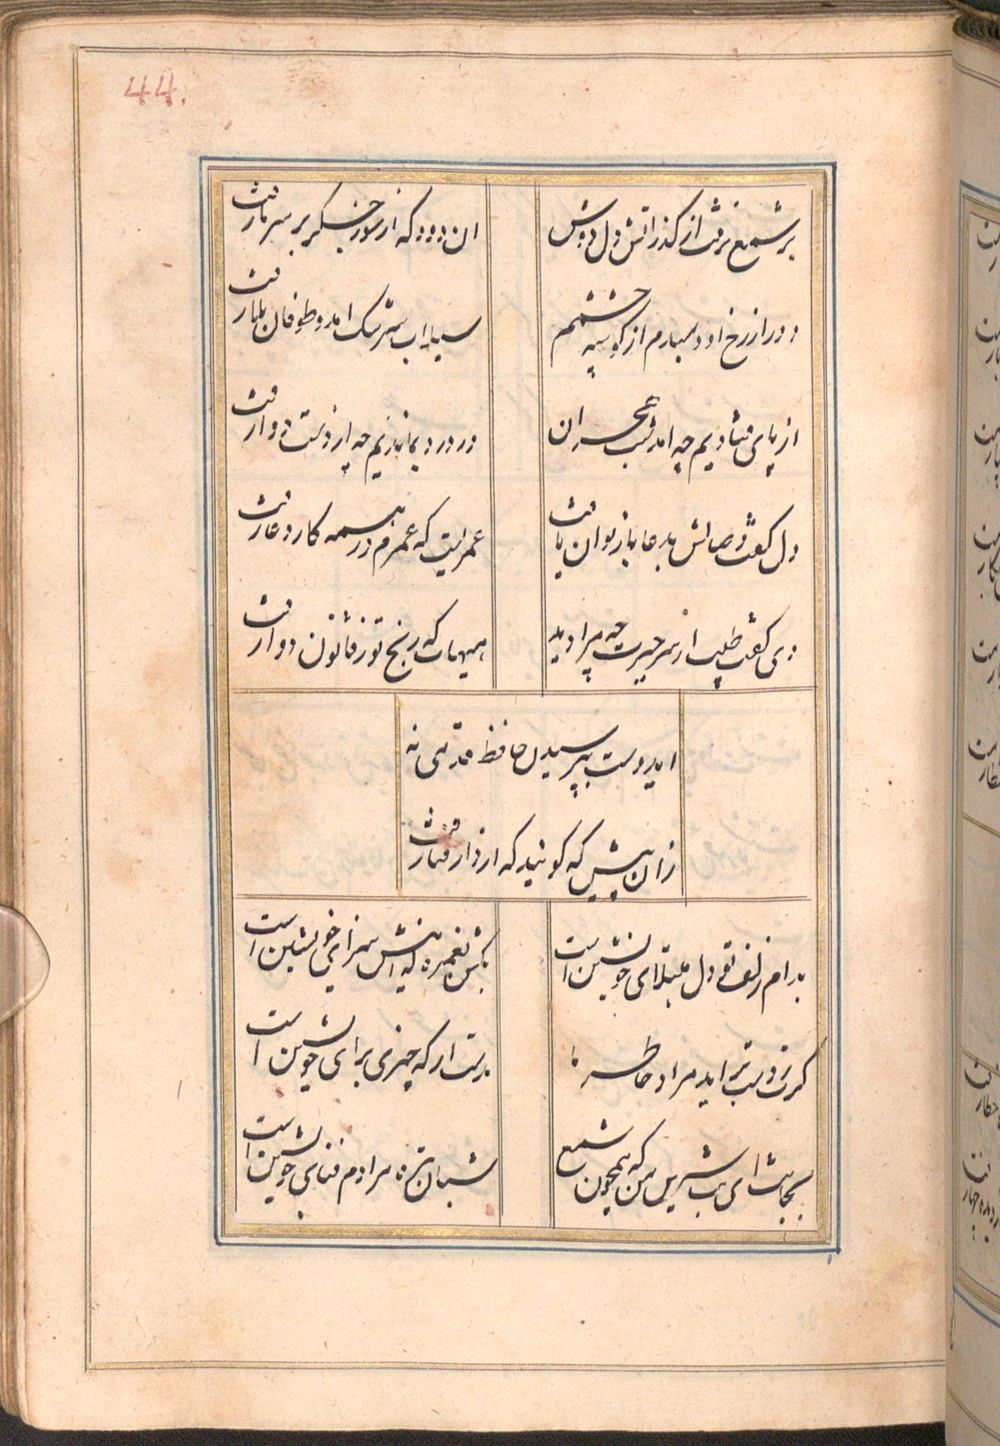 44.
بر شمع نرفت از گذر اتش دل دوش
ان دود که از سوز جگر بر سر ما رفت
دور از رخ او دمبدم از گوشه چشمم
سیلاب سرشک امد و طوفان بلا رفت
از پای فتادیم چو امد شب هجران
در درد بماندیم چو از دست دوا رفت
دل گفت وصالش بدعا باز توان یافت
عمریست که عمرم در همه کار دعا رفت
دی گفت طبیب از سر حسرت چو مرا دید
هیهات که رنج تو ز قانون دوا رفت
ای دوست بپرسیدن حافظ قدمی نه
زان پیش که گویند که از دار فنا رفت
بدام زلف تو دل مبتلای خویشتن است
بکش بغمزه که اینش سزای خویشتن است
گرت ز دست بر اید مراد خاطر ما
بدست ار که چیزی بجای خویشتن است
بجانت ای بت شیرین من که همچون شمع
شبان تیره مرادم فنای خویشتن است